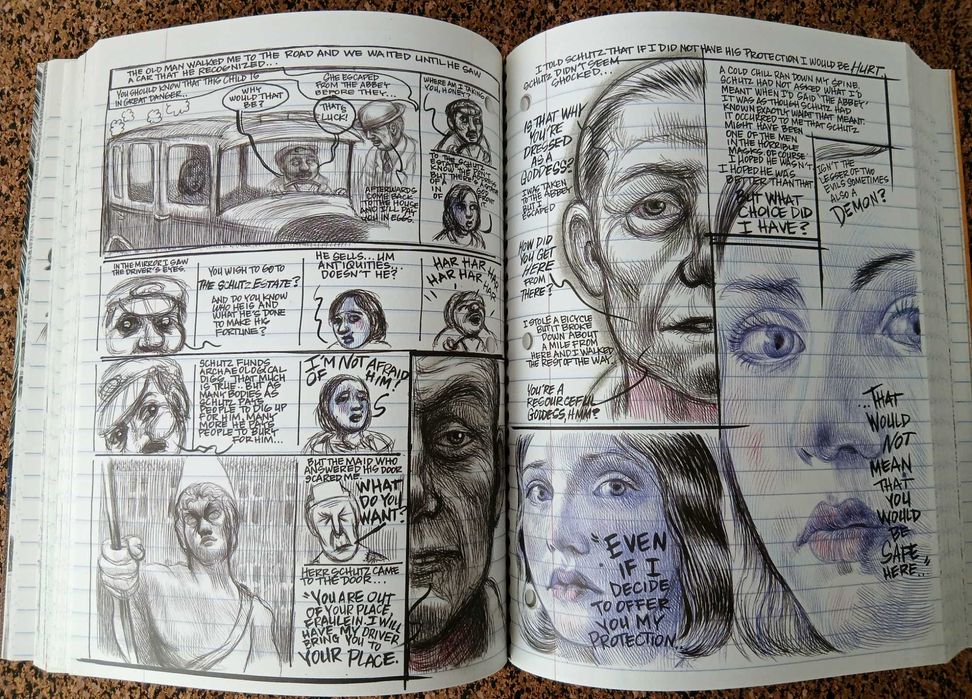 THE OLD MAN WALKED ME TO THE ROAD AND WE WAITED UNTIL HE SAW
A CAR THAT HE RECOGNIZED...
YOU SHOULD KNOW THAT THIS CHILD IS
IN GREAT DANGER...
WHY
WOULD THAT
BE?
SHE ESCAPED
FROM THE ABBEY
BEFORE THEY...
THAT'S
LUCK!
AFTERWARDS
COME BACK
TO THE HOUSE
AND I'LL PAY
YOU IN EGGS.
WHERE AM I TAKING
YOU, HONEY?
TO THE SCHUTZ
ESTATE. I DON'T
KNOW THE
BUT THERE'S
OF
IN FRONT
IN THE MIRROR I SAW
THE DRIVER'S EYES.
YOU WISH TO GO TO
THE SCHUTZ ESTATE?
AND DO YOU KNOW
WHO HE IS AND
WHAT HE'S DONE
TO MAKE HIS
FORTUNE?
HE SELLS... UM
ANTIQUITIES,
DOESN'T HE?
HAR HAR HAR
HAR HAR HAR
HAR
SCHUTZ FUNDS
ARCHAEOLOGICAL
DIGS. THAT MUCH
IS TRUE... BUT AS
MANY BODIES AS
SCHUTZ PAYS
PEOPLE TO DIG UP
FOR HIM, MANY
MORE HE PAYS
PEOPLE TO BURY
FOR HIM...
I'M NOT AFRAID
OF HIM!
BUT THE MAID WHO
ANSWERED HIS DOOR
SCARED ME.
WHAT
DO YOU
WANT?
HERR SCHUTZ CAME
TO THE DOOR...
"YOU ARE OUT
OF YOUR PLACE,
FRAULEIN. I WILL
HAVE MY DRIVER
BRING YOU TO
YOUR PLACE.
I TOLD SCHUTZ THAT IF I DID NOT HAVE HIS PROTECTION I WOULD BE HURT.
SCHUTZ DIDN'T SEEM
SHOCKED...
IS THAT WHY
YOU'RE
DRESSED
AS A
GODDESS?
I WAS TAKEN
TO THE ABBEY
BUT I
ESCAPED
HOW DID
YOU GET
HERE
FROM
THERE?
I STOLE A BICYCLE
BUT IT BROKE
DOWN ABOUT
A MILE FROM
HERE AND I WALKED
THE REST OF THE WAY.
YOU'RE A
RESOURCEFUL
GODDESS, HMM?
A COLD CHILL RAN DOWN MY SPINE.
SCHUTZ HAD NOT ASKED WHAT I'D
MEANT WHEN I'D SAID 'THE ABBEY.'
IT WAS AS THOUGH SCHUTZ HAD
KNOWN EXACTLY WHAT THAT MEANT.
IT OCCURRED TO ME THAT SCHUTZ
MIGHT HAVE BEEN
ONE OF THE MEN
IN THE HORRIBLE
MASKS. OF COURSE
I HOPED HE WASN'T.
I HOPED HE WAS
BETTER THAN THAT
BUT WHAT
CHOICE DID
I HAVE?
ISN'T THE
LESSER OF TWO
EVILS SOMETIMES
ALSO A
DEMON?
"EVEN
IF I
DECIDE
TO OFFER
YOU MY
PROTECTION...
...THAT
WOULD
NOT
MEAN
THAT
YOU
WOULD
BE
SAFE
HERE..."